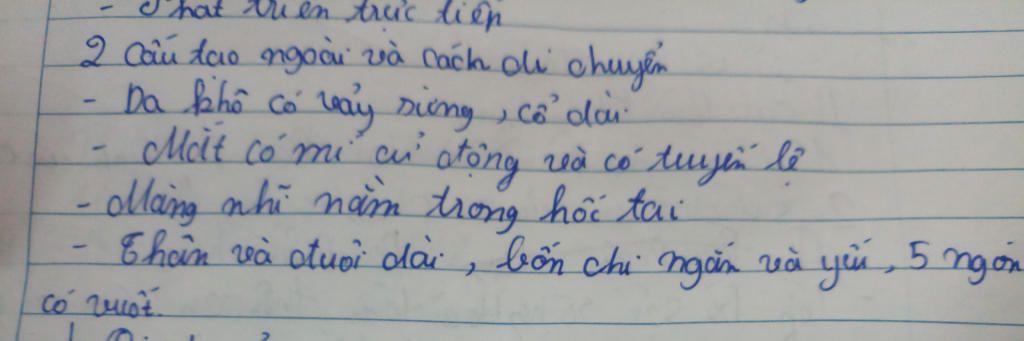 - Phát triển trực tiếp
2 Cấu tạo ngoài và cách di chuyển
- Da khô có vảy sừng, cổ dài
- Mắt có mí cử động và có tuyến lệ
- Màng nhĩ nằm trong hốc tai
- Thân và đuôi dài, bốn chi ngắn và yếu, 5 ngón
có vuốt.